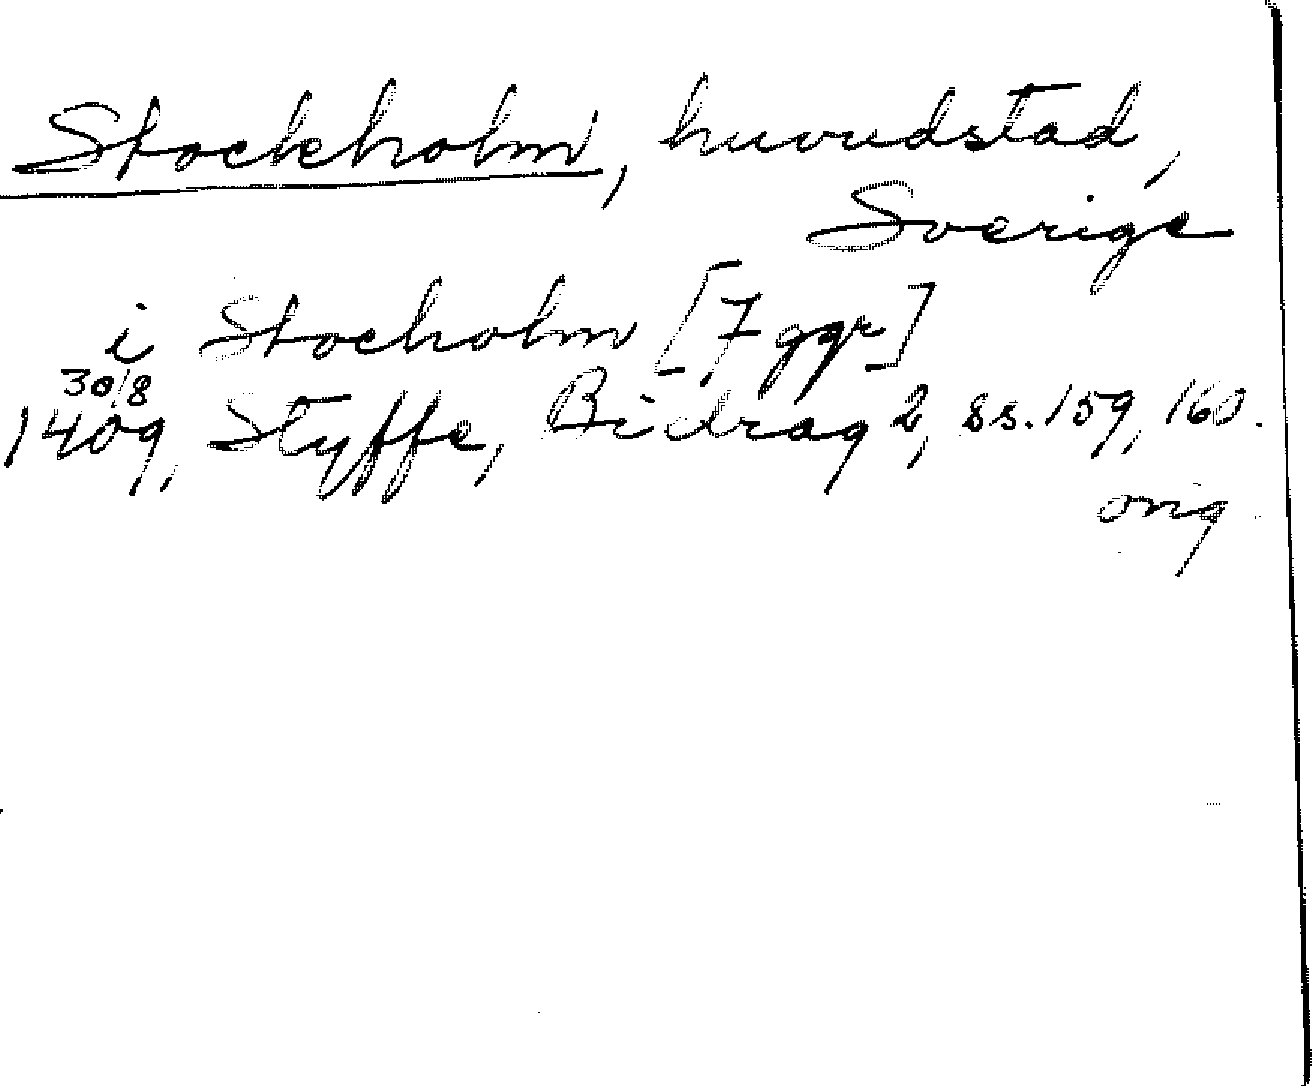 Stockholm, huvudstad,
Sverige
i Stocholm [7 ggr]
30/8
1409, Styffe, Bidrag 2, ss. 159, 160.
orig